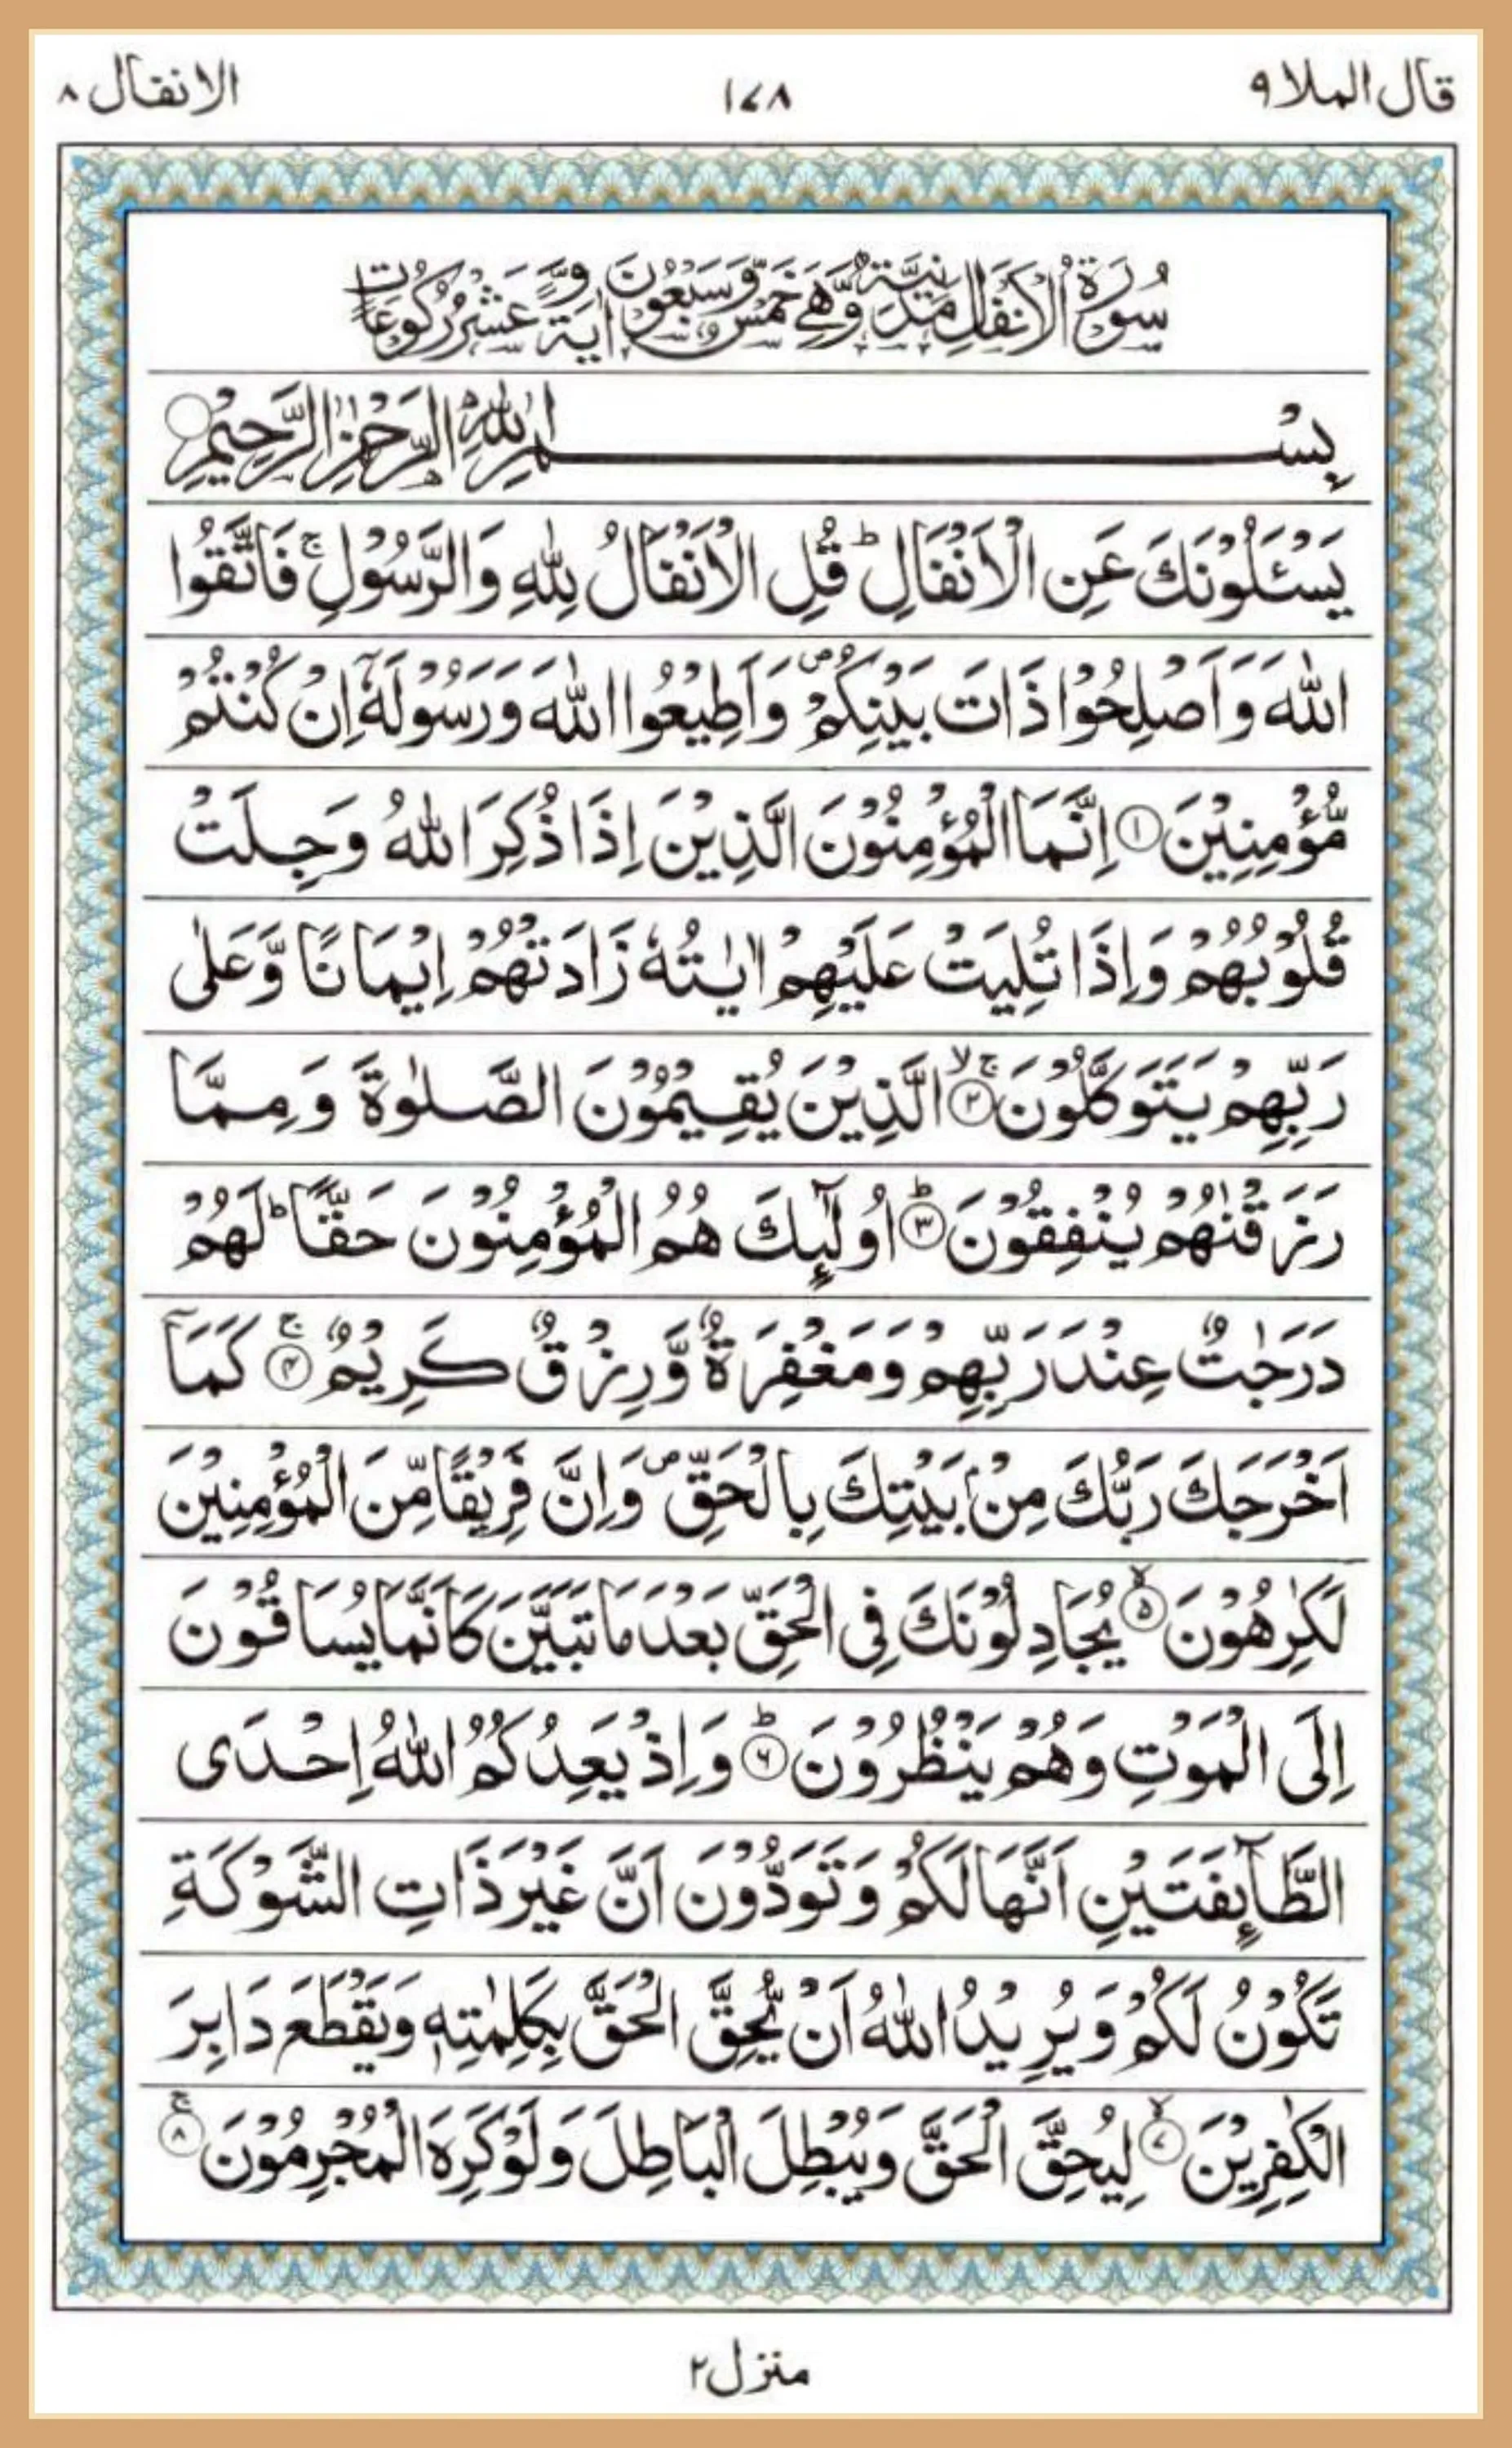 قال الملا ٩
١٧٨
الانفال ٨
سُوْرَةُ الْاَنْفَالِ مَدَنِيَّةٌ وَّهِيَ خَمْسٌ وَّسَبْعُوْنَ اٰيَةً وَّعَشْرُ رُكُوْعَاتٍ
بِسْمِ اللّٰهِ الرَّحْمٰنِ الرَّحِيْمِ
يَسْـَٔلُوْنَكَ عَنِ الْاَنْفَالِ ؕ قُلِ الْاَنْفَالُ لِلّٰهِ وَالرَّسُوْلِ ۚ فَاتَّقُوا
اللّٰهَ وَاَصْلِحُوْا ذَاتَ بَيْنِكُمْ ۪ وَاَطِيْعُوا اللّٰهَ وَرَسُوْلَهٗۤ اِنْ كُنْتُمْ
مُّؤْمِنِيْنَ ﴿١﴾ اِنَّمَا الْمُؤْمِنُوْنَ الَّذِيْنَ اِذَا ذُكِرَ اللّٰهُ وَجِلَتْ
قُلُوْبُهُمْ وَاِذَا تُلِيَتْ عَلَيْهِمْ اٰيٰتُهٗ زَادَتْهُمْ اِيْمَانًا وَّعَلٰى
رَبِّهِمْ يَتَوَكَّلُوْنَ ۚۙ ﴿٢﴾ الَّذِيْنَ يُقِيْمُوْنَ الصَّلٰوةَ وَمِمَّا
رَزَقْنٰهُمْ يُنْفِقُوْنَ ؕ ﴿٣﴾ اُولٰٓئِكَ هُمُ الْمُؤْمِنُوْنَ حَقًّا ؕ لَهُمْ
دَرَجٰتٌ عِنْدَ رَبِّهِمْ وَمَغْفِرَةٌ وَّرِزْقٌ كَرِيْمٌ ۚ ﴿٤﴾ كَمَاۤ
اَخْرَجَكَ رَبُّكَ مِنْۢ بَيْتِكَ بِالْحَقِّ ۪ وَاِنَّ فَرِيْقًا مِّنَ الْمُؤْمِنِيْنَ
لَكٰرِهُوْنَ ۙ ﴿٥﴾ يُجَادِلُوْنَكَ فِى الْحَقِّ بَعْدَ مَا تَبَيَّنَ كَاَنَّمَا يُسَاقُوْنَ
اِلَى الْمَوْتِ وَهُمْ يَنْظُرُوْنَ ؕ ﴿٦﴾ وَاِذْ يَعِدُكُمُ اللّٰهُ اِحْدَى
الطَّآئِفَتَيْنِ اَنَّهَا لَكُمْ وَتَوَدُّوْنَ اَنَّ غَيْرَ ذَاتِ الشَّوْكَةِ
تَكُوْنُ لَكُمْ وَيُرِيْدُ اللّٰهُ اَنْ يُّحِقَّ الْحَقَّ بِكَلِمٰتِهٖ وَيَقْطَعَ دَابِرَ
الْكٰفِرِيْنَ ۙ ﴿٧﴾ لِيُحِقَّ الْحَقَّ وَيُبْطِلَ الْبَاطِلَ وَلَوْ كَرِهَ الْمُجْرِمُوْنَ ۚ ﴿٨﴾
منزل ٢